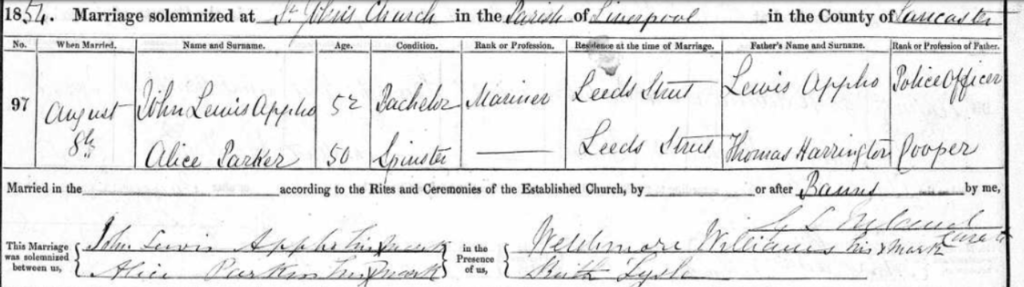 1854. Marriage solemnized at St. John's Church in the Parish of Liverpool in the County of Lancaster
No. When Married. Name and Surname. Age. Condition. Rank or Profession. Residence at the time of Marriage. Father's Name and Surname. Rank or Profession of Father.
97 August 8th John Lewis Appho 52 Bachelor Mariner Leeds Street Lewis Appho Police Officer
Alice Parker 50 Spinster Leeds Street Thomas Harrington Cooper
Married in the according to the Rites and Ceremonies of the Established Church, by or after Banns by me,
Curate
This Marriage was solemnized between us, John Lewis Appho his x mark in the Presence of us, Williams his x mark
Alice Parker x mark Ruth